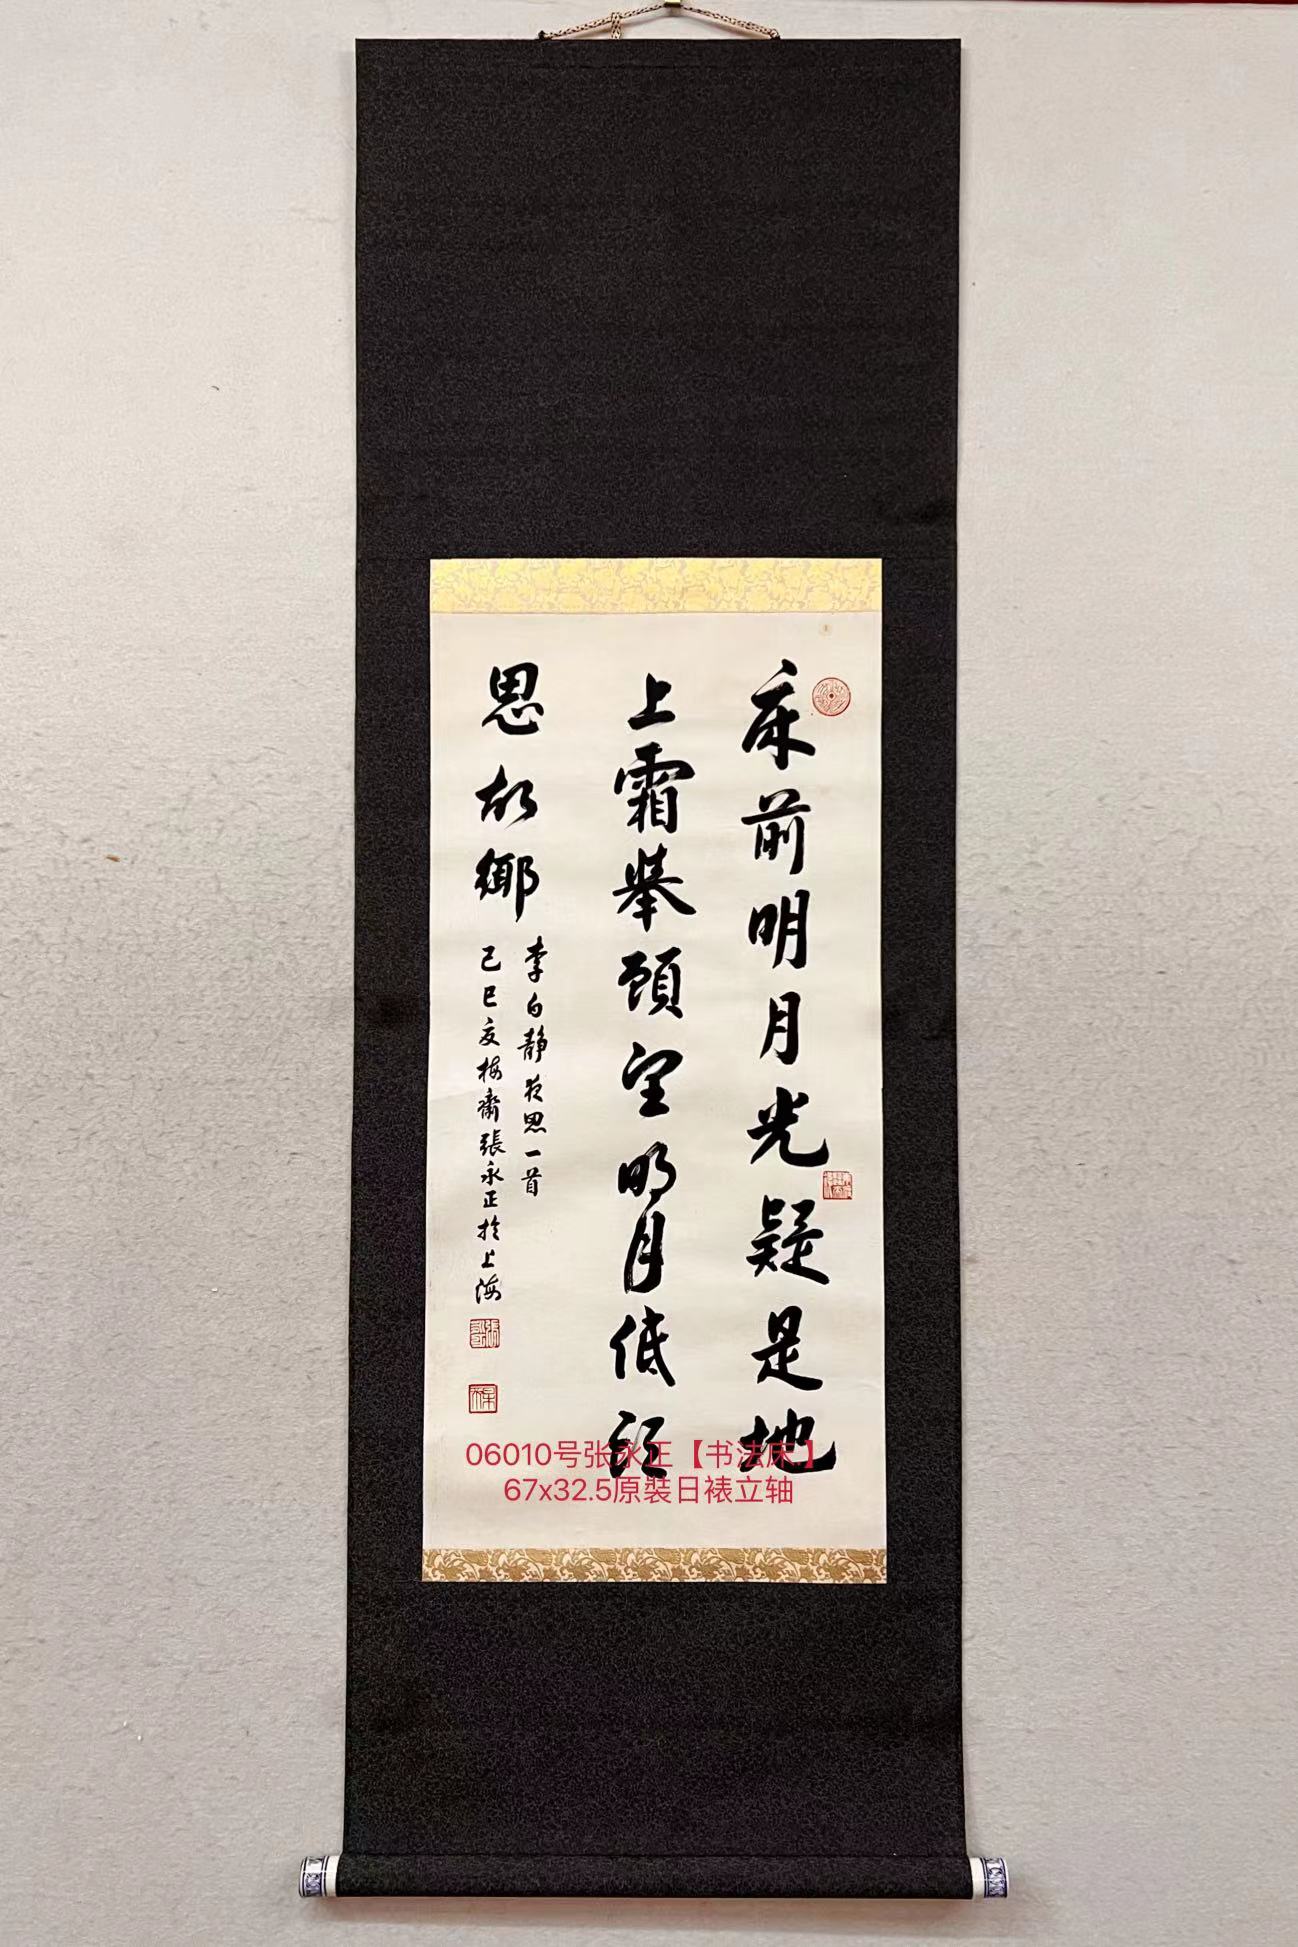 床前明月光疑是地
上霜舉頭望明月低頭
思故鄉
李白静夜思一首
己巳友梅齋張永正於上海
06010号张永正【书法床.】
67x32.5原裝日裱立轴